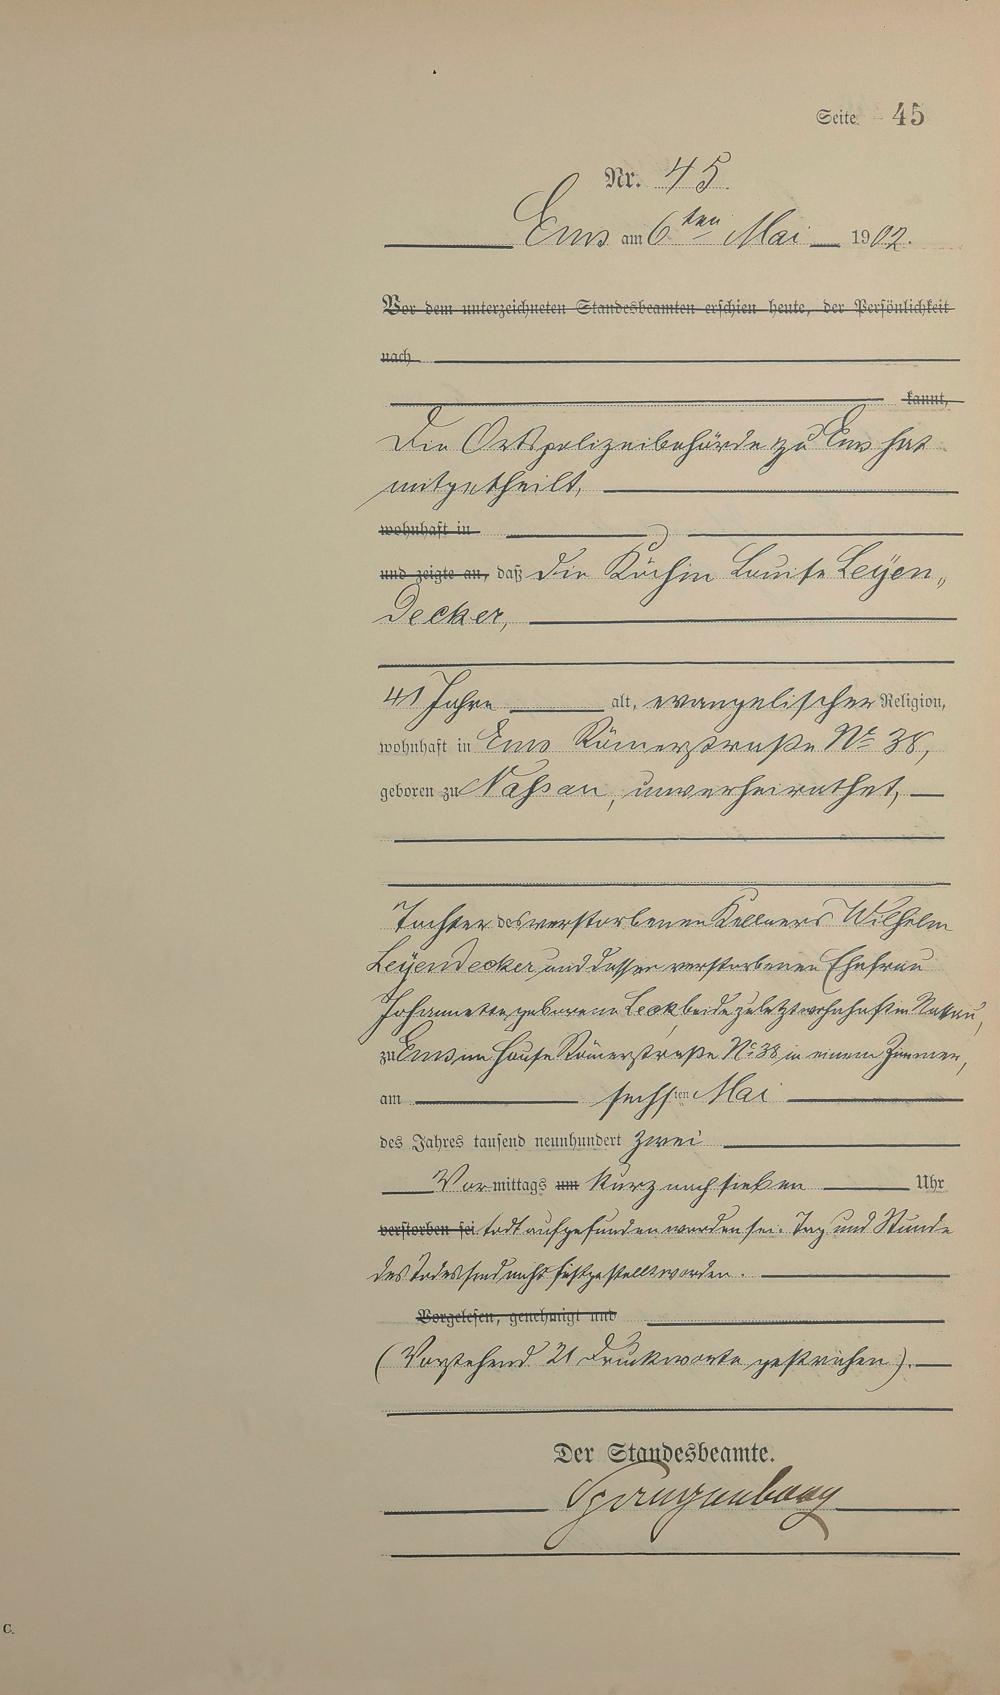 Seite 45
Nr. 45.
Ems am 6ten Mai 1902.
Vor dem unterzeichneten Standesbeamten erschien heute, der Persönlichkeit
nach
kannt,
Die Ortspolizeibehörde zu Ems hat
mitgetheilt,
wohnhaft in
und zeigte an, daß die Köchin Louise Leÿen„
decker,
41 Jahre alt, evangelischer Religion,
wohnhaft in Ems Römerstraße Nr 38,
geboren zu Nassau, unverheirathet,
Tochter des verstorbenen Kellners Wilhelm
Leÿendecker und dessen verstorbenen Ehefrau
Johannette, geborene beide zuletzt wohnhaft in Nassau,
zu Ems im Hause Römerstraße Nr. 38 in einem Zimmer,
am sechsten Mai
des Jahres tausend neunhundert zwei
Vormittags um kurz nach sieben Uhr
verstorben sei todt aufgefunden worden sei. Tag und Stunde
des Todes sind nicht festgestellt worden.
Vorgelesen, genehmigt und
(Vorstehend 21 Druckworte gestrichen).
Der Standesbeamte.
C.